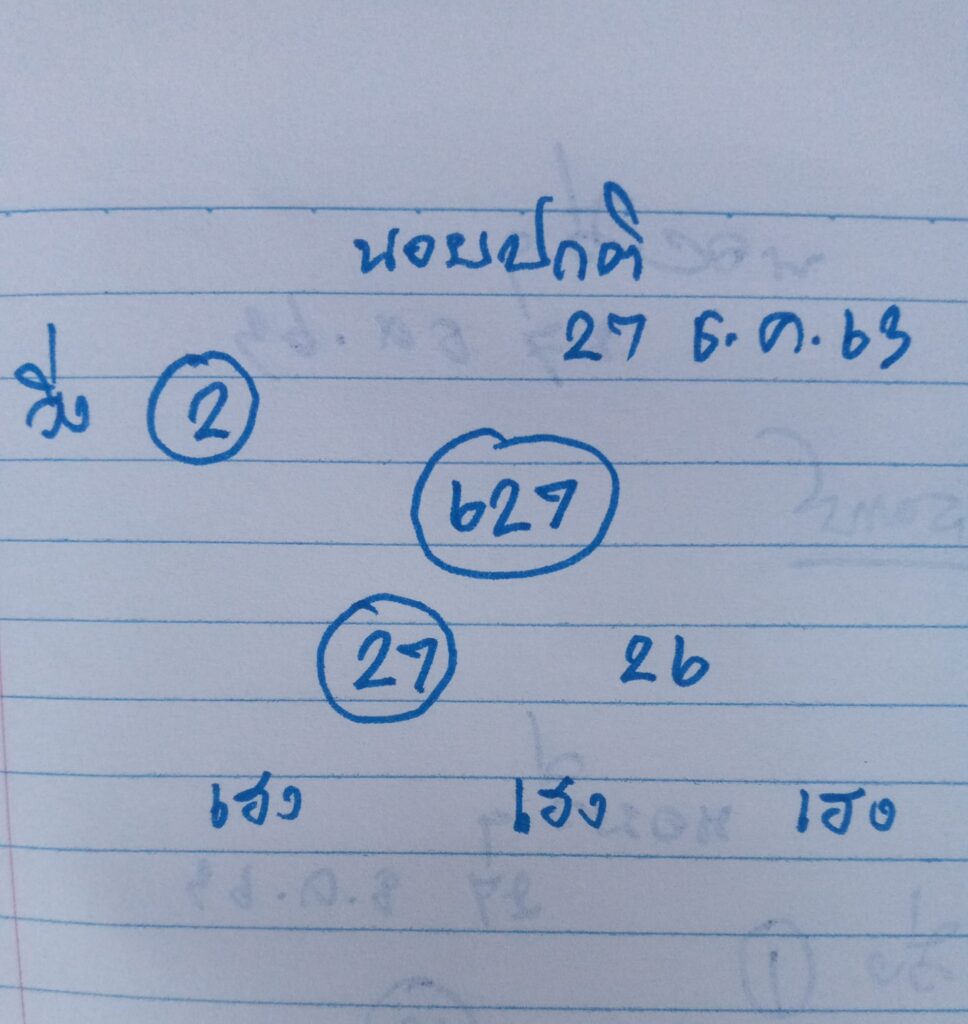 นอยปกติ
27 ธ.ค.63
วิ่ง 2
627
27 26
เฮง เฮง เฮง